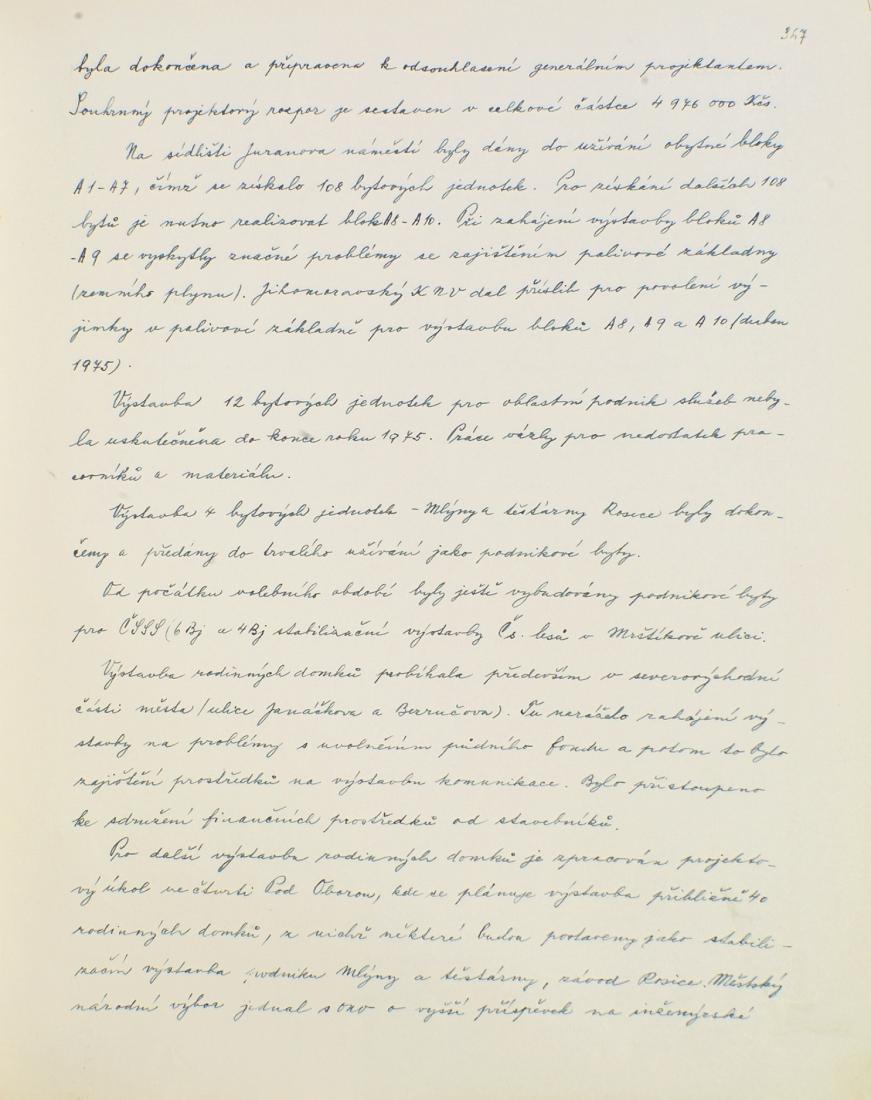 347
byla dokončena a připravena k odsouhlasení generálním projektantem.
Souhrnný projektový rozpor je sestaven v celkové částce 4 976 000 Kčs.
Na sídlišti Juranova náměstí byly dány do užívání obytné bloky
A1-A7, čímž se získalo 108 bytových jednotek. Pro získání dalších 108
bytů je nutno realizovat blok A8-A10. Při zahájení výstavby bloků A8
-A9 se vyskytly značné problémy se zajištěním palivové základny
(zemního plynu). Jihomoravský KNV dal příslib pro povolení vý-
jimky v palivové základně pro výstavbu bloků A8, A9 a A10 (duben
1975).
Výstavba 12 bytových jednotek pro oblastní podnik služeb neby-
la uskutečněna do konce roku 1975. Práce vázly pro nedostatek pra-
covníků a materiálu.
Výstavba 4 bytových jednotek - Mlýny a těstárny Rosice byly dokon-
čeny a předány do trvalého užívání jako podnikové byty.
Od počátku volebního období byly ještě vybudovány podnikové byty
pro ČSSS (6 Bj a 4 Bj stabilizační výstavby Čs. lesů v Mrštíkově ulici.
Výstavba rodinných domků probíhala především v severovýchodní
části města (ulice Janáčkova a Bezručova). Tu naráželo zahájení vý-
stavby na problémy s uvolněním půdního fondu a potom to bylo
zajištění prostředků na výstavbu komunikace. Bylo přistoupeno
ke sdružení finančních prostředků od stavebníků.
Pro další výstavbu rodinných domků je zpracován projekto-
vý úkol ve čtvrti Pod Oborou, kde se plánuje výstavba přibližně 40
rodinných domků, z nichž některé budou postaveny jako stabili-
zační výstavba podniku Mlýny a těstárny, závod Rosice. Městský
národní výbor jednal s ONV o vyšší příspěvek na inženýrské